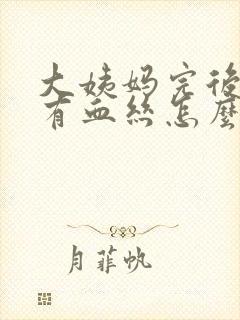 大姨妈完後
有血丝怎麼
月菲帆